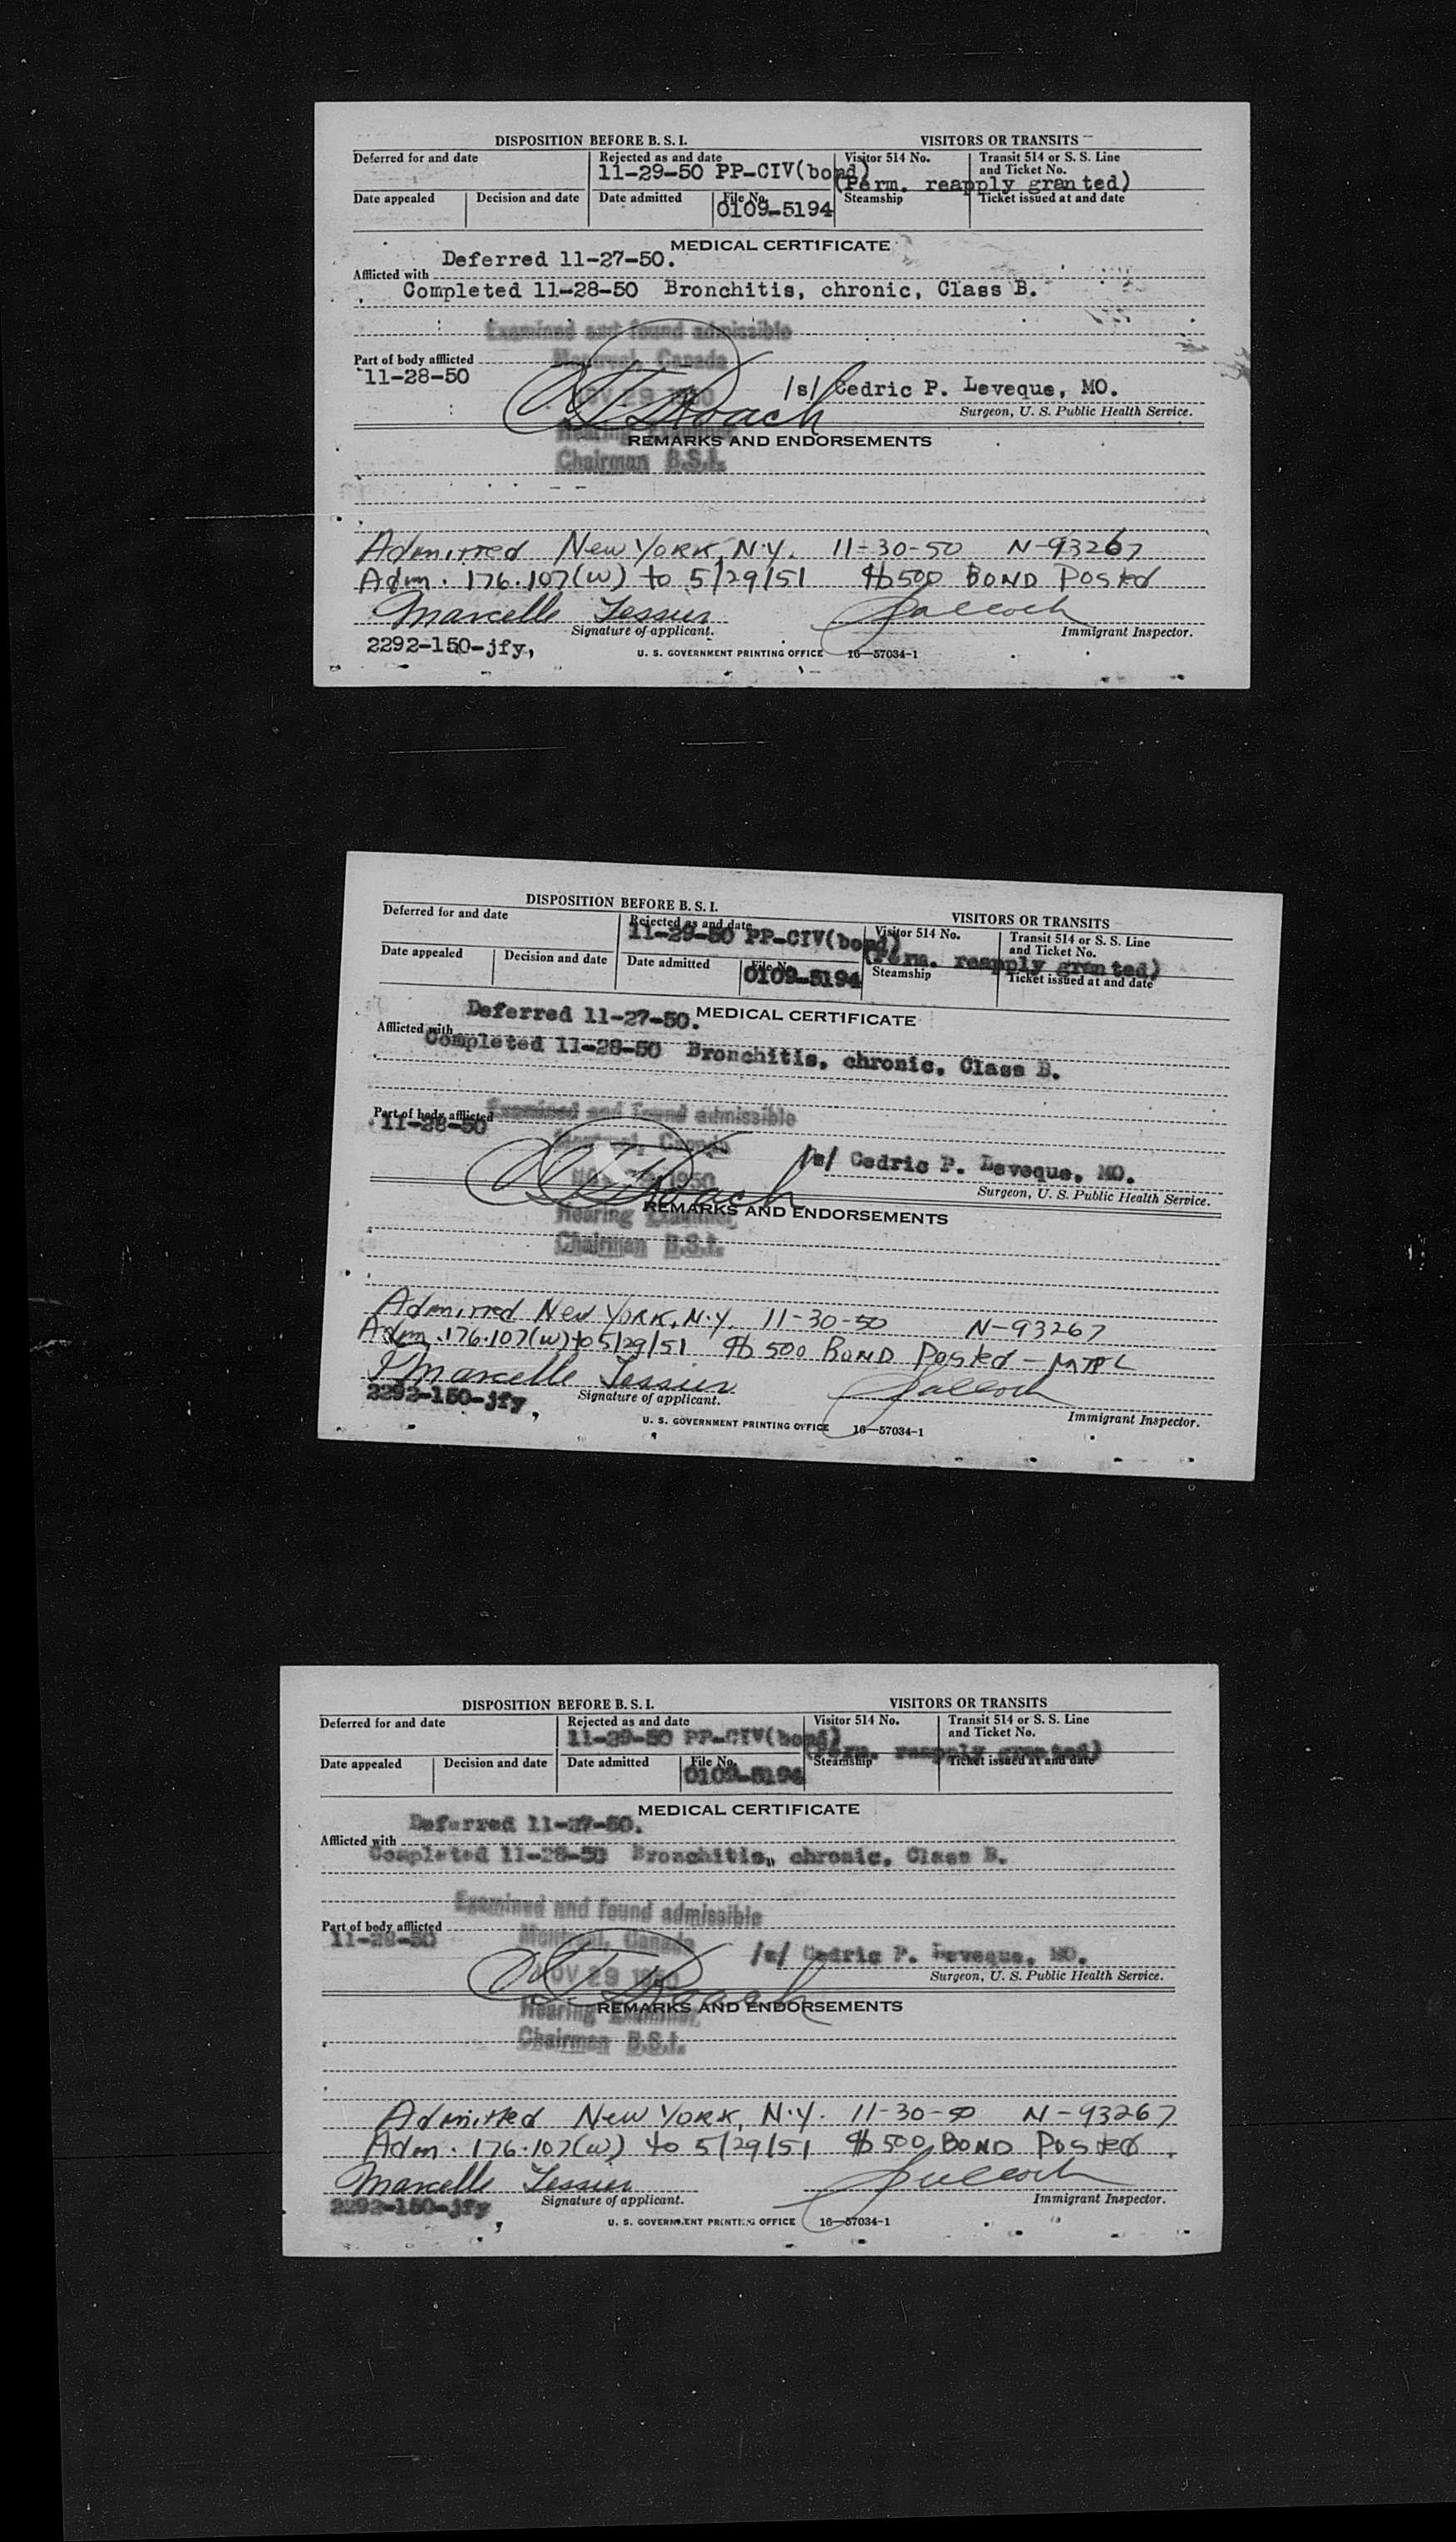 DISPOSITION BEFORE B. S. I. VISITORS OR TRANSITS
Deferred for and date Rejected as and date Visitor 514 No. Transit 514 or S. S. Line
and Ticket No.
11-29-50 PP-CIV(bond)
(Perm. reapply granted)
Date appealed Decision and date Date admitted File No. Steamship Ticket issued at and date
0109-5194
MEDICAL CERTIFICATE
Deferred 11-27-50.
Afflicted with
Completed 11-28-50 Bronchitis, chronic, Class B.
Examined and found admissible
Part of body afflicted Montreal, Canada
11-28-50 NOV 29 1950 /s/ Cedric P. Leveque, MO.
Roach Surgeon, U. S. Public Health Service.
Hearing Examiner
REMARKS AND ENDORSEMENTS
Chairman B.S.I.
Admitted New York, N.Y. 11-30-50 N-93267
Adm. 176.107(w) to 5/29/51 $500 Bond Posted
Marcelle Tessier
Signature of applicant. Immigrant Inspector.
2292-150-jfy,
U. S. GOVERNMENT PRINTING OFFICE 16—57034-1
DISPOSITION BEFORE B. S. I. VISITORS OR TRANSITS
Deferred for and date Rejected as and date Visitor 514 No. Transit 514 or S. S. Line
and Ticket No.
11-29-50 PP-CIV(bond)
(Perm. reapply granted)
Date appealed Decision and date Date admitted File No. Steamship Ticket issued at and date
0109-5194
MEDICAL CERTIFICATE
Deferred 11-27-50.
Afflicted with
Completed 11-28-50 Bronchitis, chronic, Class B.
Examined and found admissible
Part of body afflicted
11-28-50 Montreal, Canada
/s/ Cedric P. Leveque, MO.
NOV 29 1950
Roach Surgeon, U. S. Public Health Service.
Hearing Examiner,
REMARKS AND ENDORSEMENTS
Chairman B.S.I.
Admitted New York, N.Y. 11-30-50 N-93267
Adm. 176.107(w) to 5/29/51 $500 Bond Posted - MTPL
Marcelle Tessier
Signature of applicant. Immigrant Inspector.
2292-150-jfy,
U. S. GOVERNMENT PRINTING OFFICE 16—57034-1
DISPOSITION BEFORE B. S. I. VISITORS OR TRANSITS
Deferred for and date Rejected as and date Visitor 514 No. Transit 514 or S. S. Line
and Ticket No.
11-29-50 PP-CIV(bond)
(Perm. reapply granted)
Date appealed Decision and date Date admitted File No. Steamship Ticket issued at and date
0109-5194
MEDICAL CERTIFICATE
Deferred 11-27-50.
Afflicted with
Completed 11-28-50 Bronchitis, chronic, Class B.
Examined and found admissible
Part of body afflicted
11-28-50 Montreal, Canada
/s/ Cedric P. Leveque, MO.
NOV 29 1950
Roach Surgeon, U. S. Public Health Service.
Hearing Examiner,
REMARKS AND ENDORSEMENTS
Chairman B.S.I.
Admitted New York, N.Y. 11-30-50 N-93267
Adm. 176.107(w) to 5/29/51 $500 Bond Posted
Marcelle Tessier
Signature of applicant. Immigrant Inspector.
2292-150-jfy,
U. S. GOVERNMENT PRINTING OFFICE 16—57034-1